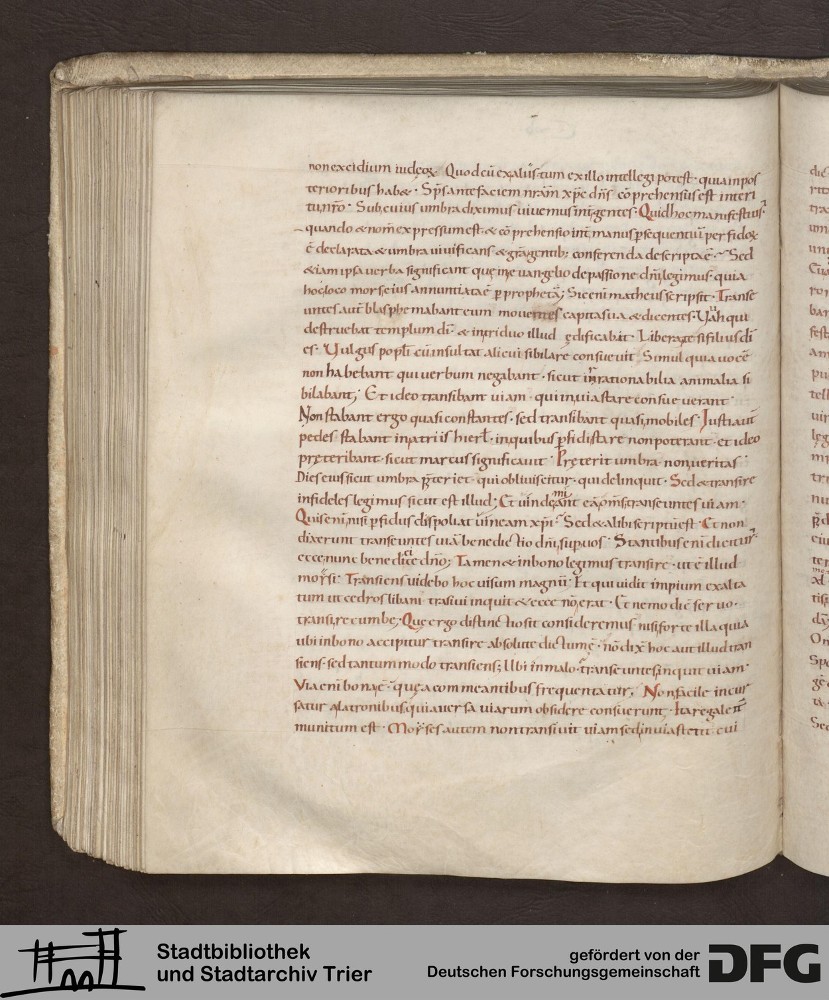 non excidium iudeoꝝ. Quod cū exaliis tum ex illo intellegi potest. quia in pos
terioribus hab&. Sp̄s ante faciem nr̄am xp̄c dn̄s cōprehensus est interi
tu nr̄o. Sub cuius umbra diximus uiuemus int̄ gentes. Quid hoc manifestius.
quando & nom̄ expressum est. & cōprehensio int̄ manus ꝑsequentiū perfidoꝝ
ē declarata & umbra uiuificans & gr̄a gentib; conferenda descripta ē. Sed
& iam ipsa uerba significant quę in euangelio de passione dn̄i legimus. quia
hoc loco mors eius annuntiata ē ꝑ proph&ā; Sic enī matheus scripsit. Transe
untes aut̄ blasphemabant eum mouentes capita sua & dicentes. Uah qui
destruebat templum dī. & in triduo illud ędificabat. Libera te si filius dī
es. Uulgus popl̄i cū insultat alicui sibilare consueuit. Simul quia uocē
non habebant qui uerbum negabant. sicut irrationabilia animalia si
bilabant; Et ideo transibant uiam. qui in uia stare consueuerant
Non stabant ergo quasi constantes. sed transibant quasi mobiles. Justi aut̄
pedes stabant in atriis hierl̄. in quibus ꝑfidi stare non poterant. et ideo
pręteribant. sicut marcus significauit. Pręterit umbra non ueritas.
Dies eius sicut umbra p̄teriet. qui obliuiscitur. qui delinquit. Sed & transire
infideles legimus sicut est illud; Et uindemiant eā om̄s transeuntes uiam.
Quis enī nisi ꝑfidus dispoliat uineam xp̄i. Sed & alibi scriptū est. Et non
dixerunt transeuntes uiā benedictio dn̄i sup uos. Stantibus enī dicitur.
ecce nunc benedicite dn̄o; Tamen & in bono legimus transire. ut ē illud
moysi. Transiens uidebo hoc uisum magnū. Et qui uidit impium exalta
tum ut cedros libani. transiui inquit & ecce nō erat. Et nemo dic& seruo.
transi recumbe. Quę ergo distinctio sit consideremus. nisi forte illa quia
ubi in bono accipitur transire absolute dictum ē. nō dix̄ hoc aut illud tran
siens. sed tantummodo transiens; Ubi in malo. transeuntes inquit uiam.
Via enī bona ē. quę a commeantibus frequentatur; Non facile incur
satur a latronibus qui auersa uiarum obsidere consuerunt. Ita regale iter
munitum est. Moyses autem non transiuit uiam sed in uia stetit. cui
Stadtbibliothek
und Stadtarchiv Trier
gefördert von der
Deutschen Forschungsgemeinschaft
DFG